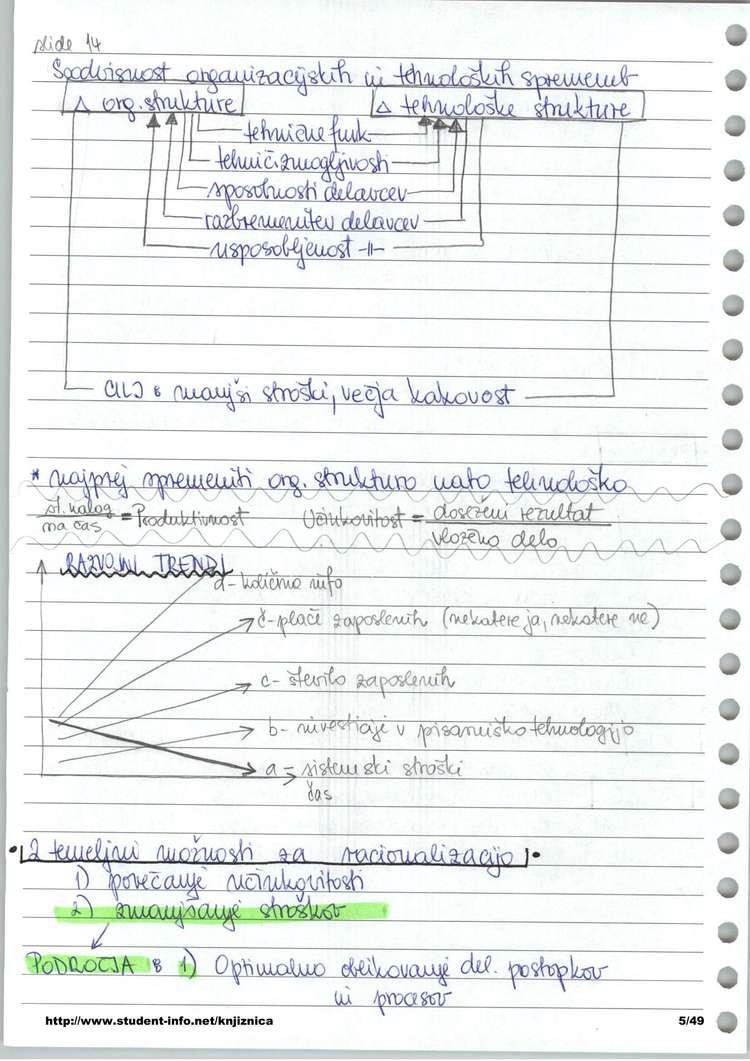 slide 14
Soodvisnost organizacijskih in tehnoloških sprememb
Δ org. strukture Δ tehnološke strukture
tehnične funk
tehnič. zmogljivosti
sposobnosti delavcev
razbremenitev delavcev
usposobljenost -||-
CILJ: manjši stroški, večja kakovost
* najprej spremeniti org. strukturo nato tehnološko
št. nalog / na čas = Produktivnost Učinkovitost = doseženi rezultat / vloženo delo
RAZVOJNI TRENDI
d - količina info
č - plače zaposlenih (nekatere ja, nekatere ne)
c - število zaposlenih
b - investicije v pisarniško tehnologijo
a - sistemski stroški
čas
• 2 temeljni možnosti za racionalizacijo •
1) povečanje učinkovitosti
2) zmanjšanje stroškov
PODROČJA: 1) Optimalno oblikovanje del. postopkov
in procesov
http://www.student-info.net/knjiznica 5/49